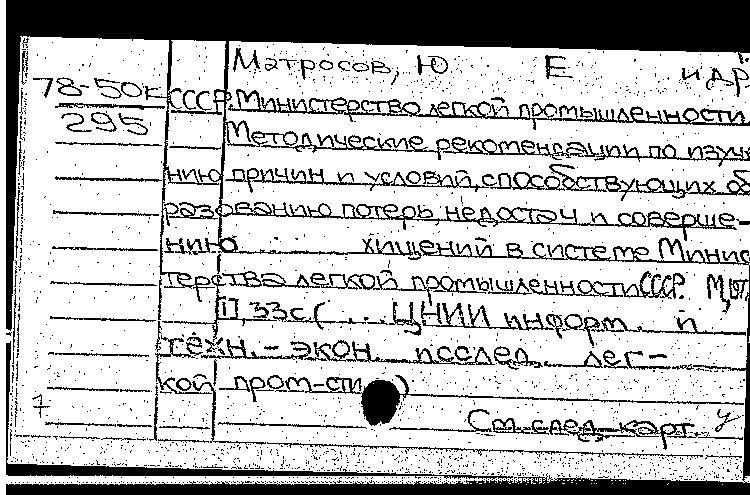 Матросов, Ю Е и др
78-50к СССР. Министерство легкой промышленности
295 Методические рекомендации по изуче
нию причин и условий, способствующих об
разованию потерь, недостач и соверше-
нию хищений в системе Минис
терства легкой промышленности СССР. М,
[1], 33с ( ... ЦНИИ информ. и
техн. - экон. исслед. лег-
кой пром-сти )
См. след. карт.